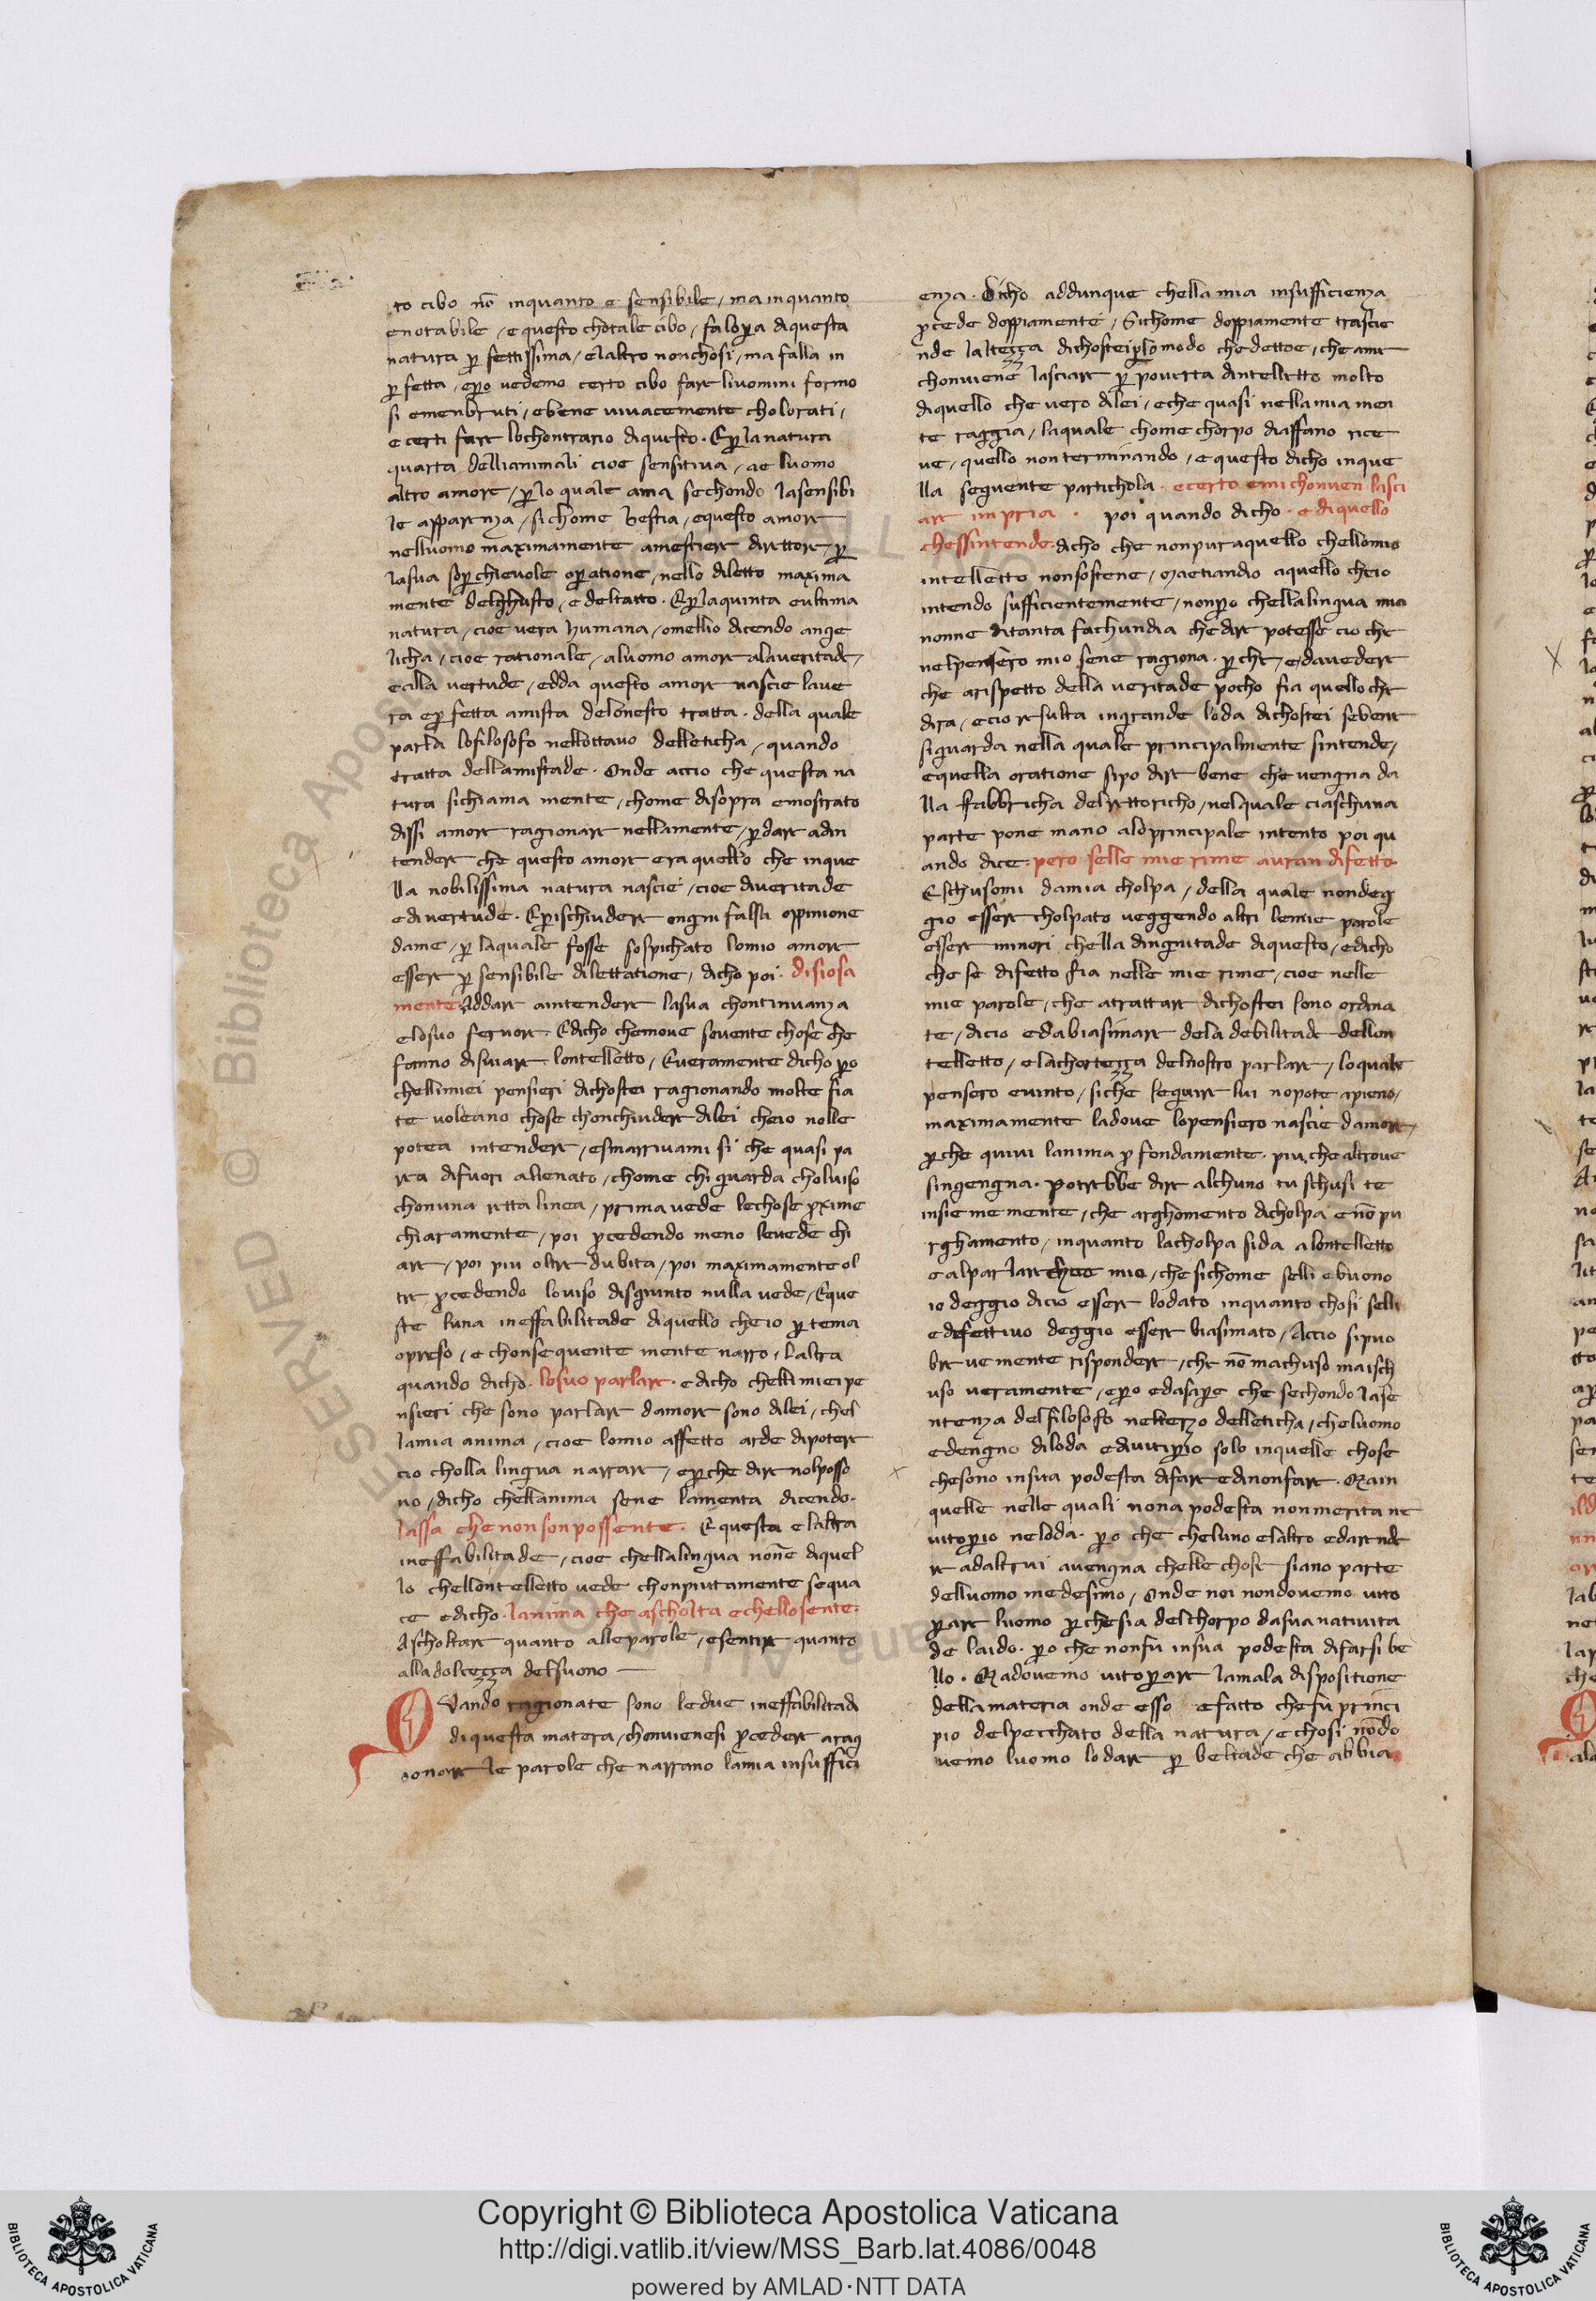 to cibo nō inquanto e sensibile / ma inquanto
e notabile / e questo chotale cibo / fa lopera di questa
natura perfettissima / e laltro non chosi / ma falla in
perfetta / epero vedemo certo cibo fare li vomini formo
si e menbruti / e bene vivacemente cholorati /
e certi fare lo chontrario di questo . E per la natura
quarta delli animali cioe sensitiva / ae luomo
altro amore / per lo quale ama sechondo la sensibi
le apparenza / si chome bestia / e questo amore
nelluomo maximamente a mestiere di rettore / per
la sua soperchievole operatione / nello diletto maxima
mente del ghusto / e del tatto . E per la quinta e ultima
natura / cioe vera humana / o mellio dicendo ange
licha / cioe rationale / a luomo amore a la veritade /
e alla vertude / e dda questo amore nascie la ve
ra e perfetta amista de lonesto tratta . della quale
parla lo filosofo nellottavo delleticha / quando
tratta dellamistade . Onde accio che questa na
tura si chiama mente / chome di sopra e mostrato
dissi amore ragionare nella mente / per dare a din
tendere che questo amore era quello che in que
lla nobilissima natura nascie / cioe di veritade
e di vertude . E per ischiudere ongni falsa oppinione
da me / per la quale fosse sospichato lo mio amore
essere per sensibile dilettatione / dicho poi . disiosa
mente . Addare a intendere la sua chontinuanza
e lo suo fervore . E dicho che move sovente chose che
fanno disviare lontelletto / E veramente dicho pero
chelli miei pensieri di chostei ragionando molte fia
te voleano chose chonchiudere di lei cheio nolle
potea intendere / e smarrivami si che quasi pa
rea di fuori alienato / chome chi guarda chol viso
chon una retta linea / prima vede le chose proxime
chiaramente / poi procedendo meno le vede chi
are / poi piu oltre dubita / poi maximamente ol
tre procedendo lo viso disgiunto nulla vede / E que
ste luna ineffabilitade di quello cheio per tema
o preso / e chonsequente mente narro . laltra
quando dicho . lo suo parlare . e dicho chelli miei pe
nsieri che sono parlare damore sono di lei / chel
la mia anima / cioe lo mio affetto arde di potere
cio cholla lingua narrare / e perche dire nol posso
no / dicho chellanima sene lamenta dicendo .
lassa che non son possente . E questa e laltra
ineffabilitade / cioe chella lingua none di quel
lo chellontelletto vede chonpiutamente sequa
ce e dicho . lanima che ascholta e chello sente .
Ascholtare quanto alle parole / e sentire quanto
alla dolcezza del suono —
Quando ragionate sono le due ineffabilitadi
di questa matera / chonvienesi procedere a rag
ionare le parole che narrano la mia insuffici
enza . Dicho addunque chella mia insufficienza
procede doppiamente / Sichome doppiamente trascie
nde laltezza di chostei per lo modo che dettoe / che a me
chonviene lasciare per poverta dintelletto molto
di quello che vero di lei / e che quasi nella mia men
te raggia / la quale chome chorpo diaffano rice
ve / quello non terminando / e questo dicho in que
lla seguente partichola . e certo e mi chonven lasci
are im pria . poi quando dicho . e di quello
chessintende . dicho che non pur a quello chello mio
intelletto non sostene / ma etiandio a quello cheio
intendo sufficientemente / non pero chella lingua mia
nonne di tanta fachundia che dire potesse cio che
nel pensero mio sene ragiona . perche / e da vedere
che a rispetto della veritade pocho fia quello che
dira / e cio resulta in grande loda di chostei se bene
si guarda nella quale principalmente sintende /
e quella oratione si po dire bene che vengna da
lla fabbricha del rettoricho / nel quale ciaschuna
parte pone mano a lo principale intento poi qu
ando dice . pero selle mie rime avran difetto
Eschusomi da mia cholpa / della quale non deg
gio essere cholpato veggendo altri le mie parole
essere minori chella dingnitade di questo / e dicho
che se difetto fia nelle mie rime / cioe nelle
mie parole / che a trattare di chostei sono ordina
te / di cio e da biasimare de la debilitade dellon
telletto / e la chortezza del nostro parlare / lo quale
pensero e vinto / siche seguire lui no pote apieno /
maximamente ladove lo pensiero nascie damore /
perche quivi lanima profondamente . piu che altrove
singengna . Potrebbe dire alchuno tu schusi te
insieme mente / che arghomento di cholpa e nō pu
rghamento / inquanto la cholpa si da a lontelletto
e al parlare mio / che sichome selli e buono
io deggio di cio essere lodato inquanto chosi selli
e defettivo deggio essere biasimato / Accio si puo
brevemente rispondere / che nō machuso ma isch
uso veramente / e pero e da sapere che sechondo la se
ntenza del filosofo nel terzo delleticha / che luomo
e dengno di loda e di vitiperio solo in quelle chose
che sono in sua podesta di fare e di non fare . Ma in
quelle nelle quali nona podesta non merita ne
vitoperio ne loda . pero che cheluno e laltro e da rende
re ad altrui avengna chelle chose siano parte
delluomo medesimo / Onde noi non dovemo vito
perare luomo perche sia del chorpo da sua nativita
de laido . pero che non fu in sua podesta di farsi be
llo . Ma dovemo vitoperare la mala dispositione
della materia onde esso e fatto che fu princi
pio del pecchato della natura / e chosi nō do
vemo luomo lodare per beltade che abbia
Copyright © Biblioteca Apostolica Vaticana
http://digi.vatlib.it/view/MSS_Barb.lat.4086/0048
powered by AMLAD·NTT DATA